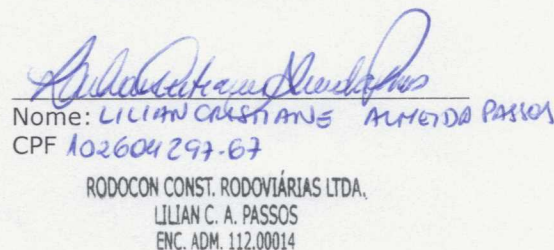 Nome: LILIAN CRISTIANE ALMEIDA PASSOS
CPF 102604297-67
RODOCON CONST. RODOVIÁRIAS LTDA.
LILIAN C. A. PASSOS
ENC. ADM. 112.00014